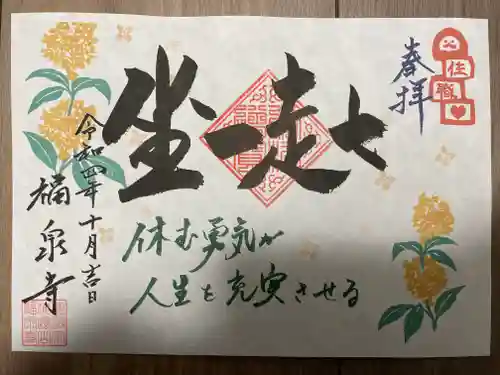 奉拝
住職
七走一坐
休む勇気が
人生を充実させる
令和四年十月吉日
福泉寺